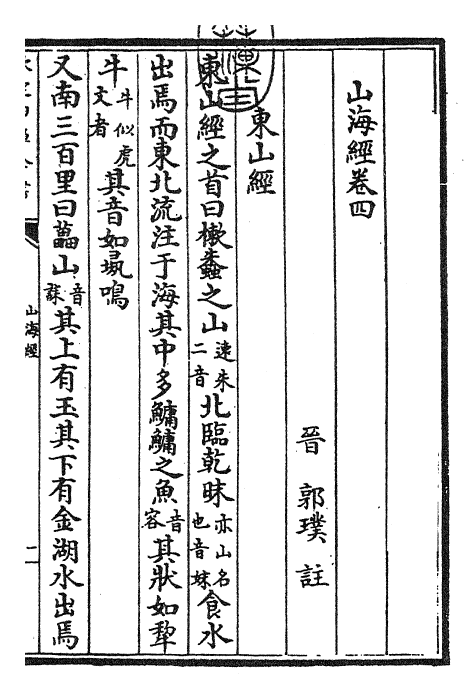 山海經卷四
晉 郭璞 註
東山經
東山經之首曰樕𧑤之山速朱二音北臨乾昧亦山名也音妹食水
出焉而東北流注于海其中多鱅鱅之魚音容其狀如犂
牛牛似虎文者其音如彘鳴
又南三百里曰藟山音誄其上有玉其下有金湖水出焉
山海經
二